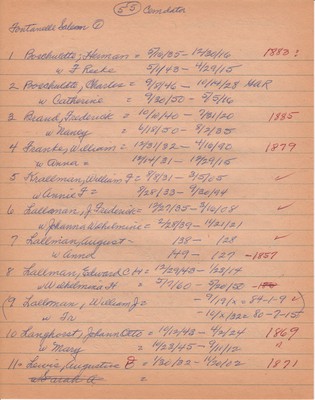 55
Fontanelle Salem ①
1 Boschulte, Herman = 5/10/35 - 12/20/16 1883 !
w F Rieke 5/1/43 - 4/29/15
2 Boschulte, Charles = 9/9/46 - 10/04/28 H&R
w Catherine = 9/30/50 - 5/5/16
3 Brand, Frederick = 10/10/40 - 7/31/20 1885
w Nancy = 6/18/50 - 8/2/35
4 Franke, William = 12/31/32 - 4/10/90 1879
w Anna = 10/14/31 - 10/29/15
5 Krallman, William F = 8/8/31 - 3/5/05 ✓
w Annie F = 8/28/33 - 9/20/94
6 Lallman, J Frederick = 12/27/35 - 3/16/08 ✓
w Johanna Wilhelmine = 2/28/39 - 11/21/21
7 Lallman, August - 138 - 128 ✓
w Anna 149 - 127 - 1857
8 Lallman, Edward C H = 12/29/43 - 1/23/14
w Wilhelmina H = 5/7/60 - 9/20/50
(9 Lallman, William J = - 9/17/12 = 84-1-9 ✓
w Fa - 12/5/1322 = 80-7-15
10 Langhorst, Johann Otto = 10/12/43 - 4/2/24 1869
w Mary = 10/23/45 - 9/11/12 "
11 Lewis, Augustine E = 1/20/32 - 11/20/02 1871
w Sarah A =